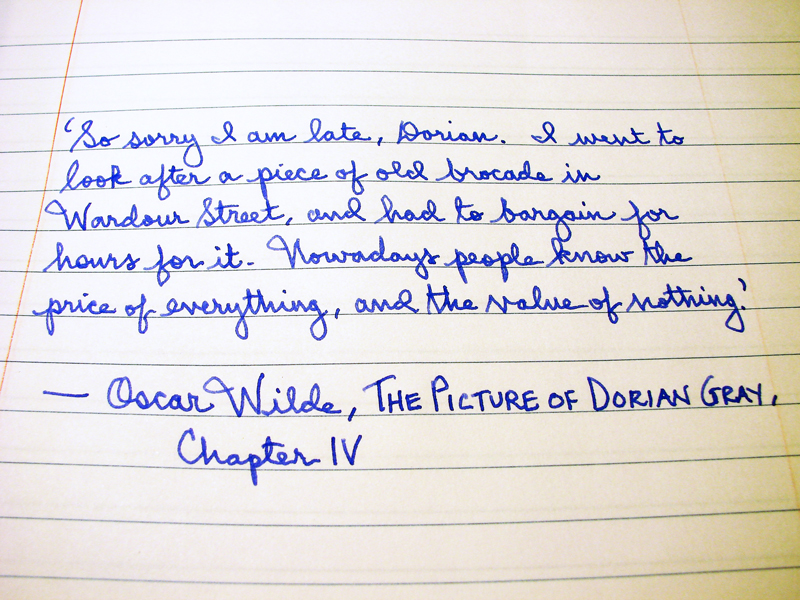 'So sorry I am late, Dorian. I went to
look after a piece of old brocade in
Wardour Street, and had to bargain for
hours for it. Nowadays people know the
price of everything, and the value of nothing.'
— Oscar Wilde, THE PICTURE OF DORIAN GRAY,
Chapter IV